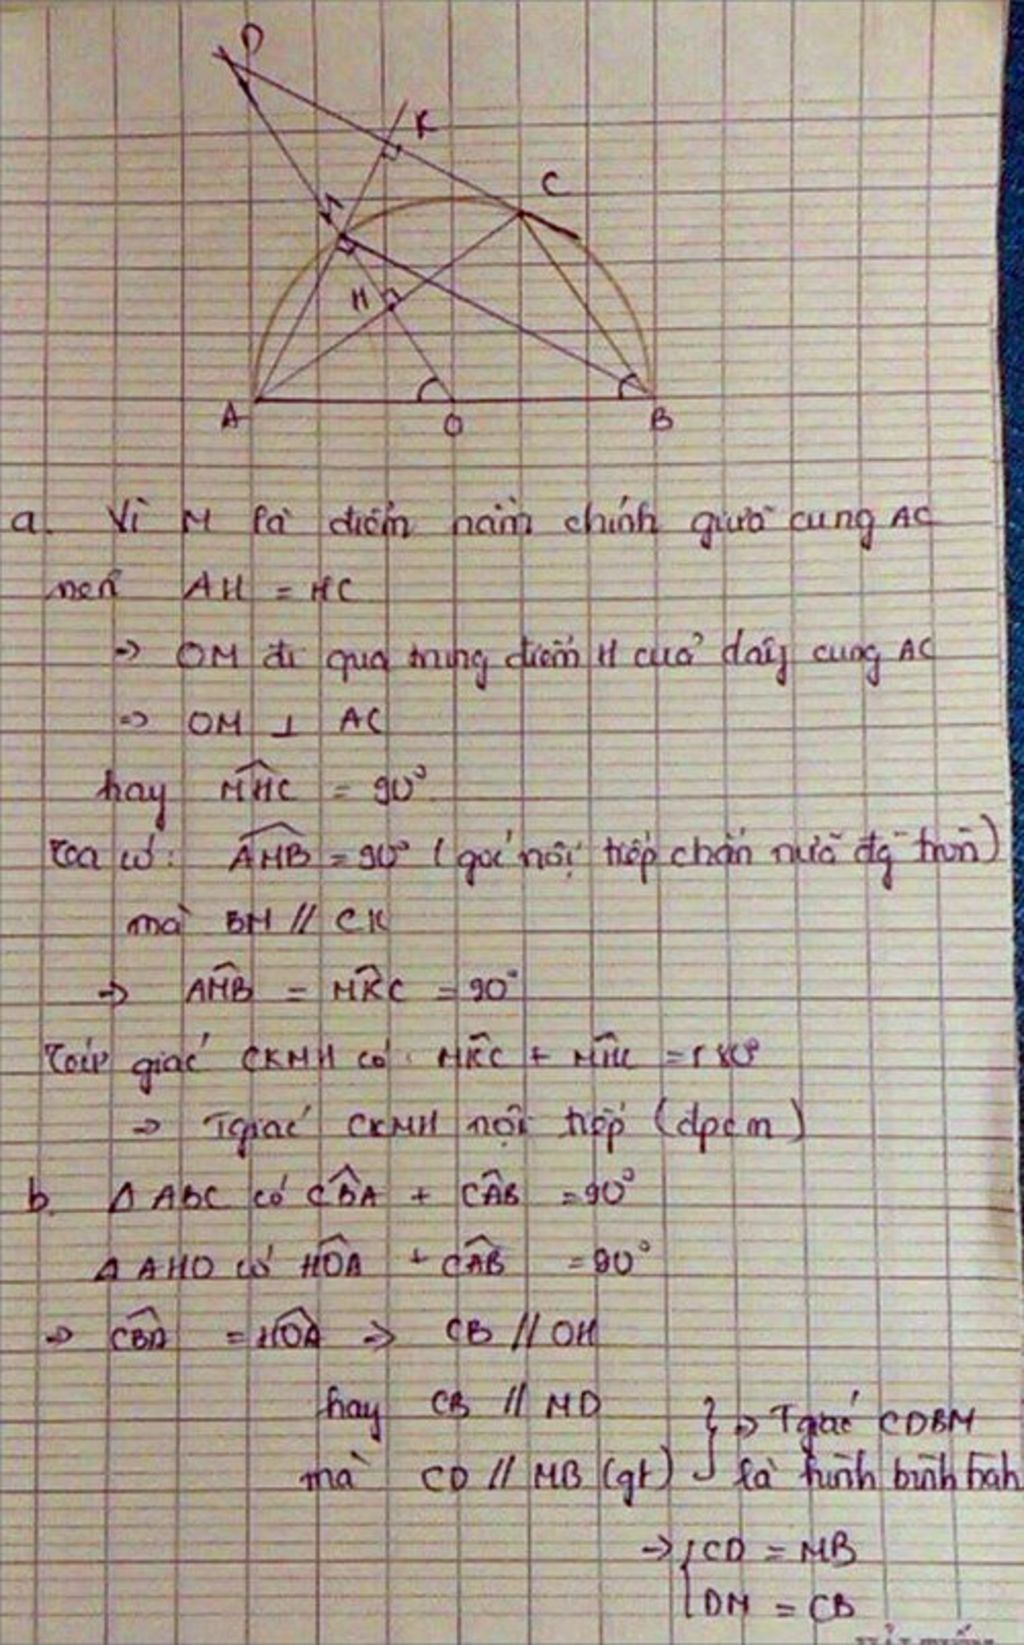 D
K
C
M
H
A
O
B
a. Vì M là điểm nằm chính giữa cung AC
nên AH = HC
=> OM đi qua trung điểm H của dây cung AC
=> OM ⊥ AC
hay MHC = 90°
Ta có: AMB = 90° (góc nội tiếp chắn nửa đg tròn)
mà BM // CK
=> AMB = MKC = 90°
Tứ giác CKMH có: MKC + MHC = 180°
=> Tgiác CKMH nội tiếp (đpcm)
b. Δ ABC có CBA + CAB = 90°
Δ AHO có HOA + CAB = 90°
=> CBA = HOA => CB // OH
hay CB // MD
mà CD // MB (gt) } => Tgiác CDBM
là hình bình hành
=> { CD = MB
DM = CB